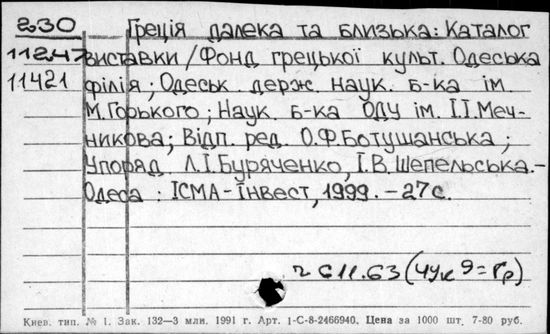 230 Греція далека та близька: Каталог
11247 виставки / Фонд грецької культ. Одеська
11421 філія; Одеськ. держ. наук. б-ка ім.
М. Горького; Наук. б-ка ОДУ ім. І.І. Меч-
никова; Відп. ред. О.Ф. Ботушанська;
Упоряд. Л.І. Буряченко, І.В. Шепельська.-
Одеса: ІСМА-Інвест, 1999. - 27с.
611.63 (4Ук 9=Гр)
Киев. тип. № 1. Зак. 132—3 млн. 1991 г. Арт. 1-С-8-2466940. Цена за 1000 шт. 7-80 руб.